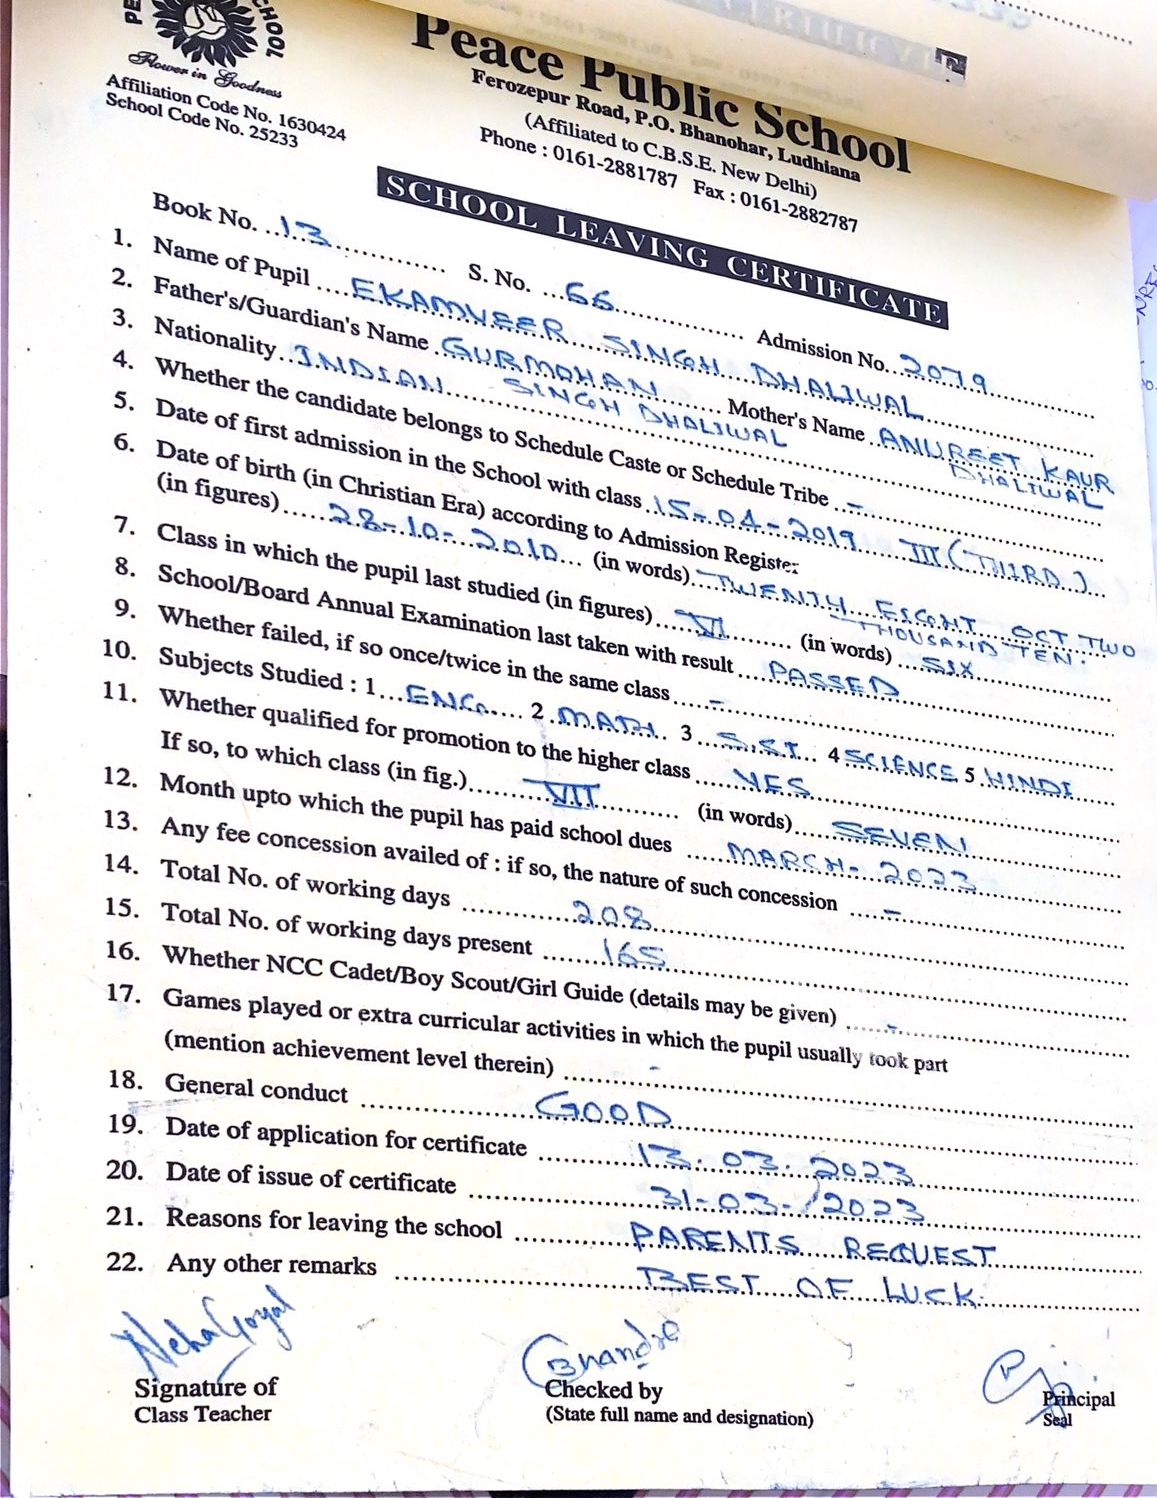 PE
CHOOL
Flower in Goodness
Affiliation Code No. 1630424
School Code No. 25233
Peace Public School
Ferozepur Road, P.O. Bhanohar, Ludhiana
(Affiliated to C.B.S.E. New Delhi)
Phone : 0161-2881787 Fax : 0161-2882787
SCHOOL LEAVING CERTIFICATE
Book No. 13 S. No. 66 Admission No. 2079
1. Name of Pupil EKAMVEER SINGH DHALIWAL
2. Father's/Guardian's Name GURMOHAN SINGH DHALIWAL Mother's Name ANUREET KAUR DHALIWAL
3. Nationality INDIAN
4. Whether the candidate belongs to Schedule Caste or Schedule Tribe -
5. Date of first admission in the School with class 15-04-2019 III (THIRD)
6. Date of birth (in Christian Era) according to Admission Register
(in figures) 28-10-2010 (in words) TWENTY EIGHT OCT TWO THOUSAND TEN.
7. Class in which the pupil last studied (in figures) VI (in words) SIX
8. School/Board Annual Examination last taken with result PASSED
9. Whether failed, if so once/twice in the same class -
10. Subjects Studied : 1 ENG. 2 MATH 3 S.ST. 4 SCIENCE 5 HINDI
11. Whether qualified for promotion to the higher class YES
If so, to which class (in fig.) VII (in words) SEVEN
12. Month upto which the pupil has paid school dues MARCH - 2023
13. Any fee concession availed of : if so, the nature of such concession -
14. Total No. of working days 208
15. Total No. of working days present 165
16. Whether NCC Cadet/Boy Scout/Girl Guide (details may be given) -
17. Games played or extra curricular activities in which the pupil usually took part
(mention achievement level therein) -
18. General conduct GOOD
19. Date of application for certificate 13.03.2023
20. Date of issue of certificate 31-03-2023
21. Reasons for leaving the school PARENTS REQUEST
22. Any other remarks BEST OF LUCK.
Neha Goyal
Signature of
Class Teacher
Checked by
(State full name and designation)
Principal
Seal